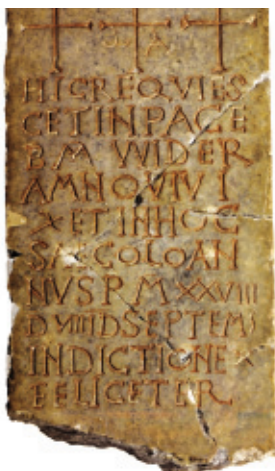 HIC REQVIES
CET IN PACE
B M WIDER
AMN QVI VI
XET IN HOC
SAECOLO AN
NVS P M XXVIII
D VIIII D SEPTEMS
INDICTIONE X
FELICETER